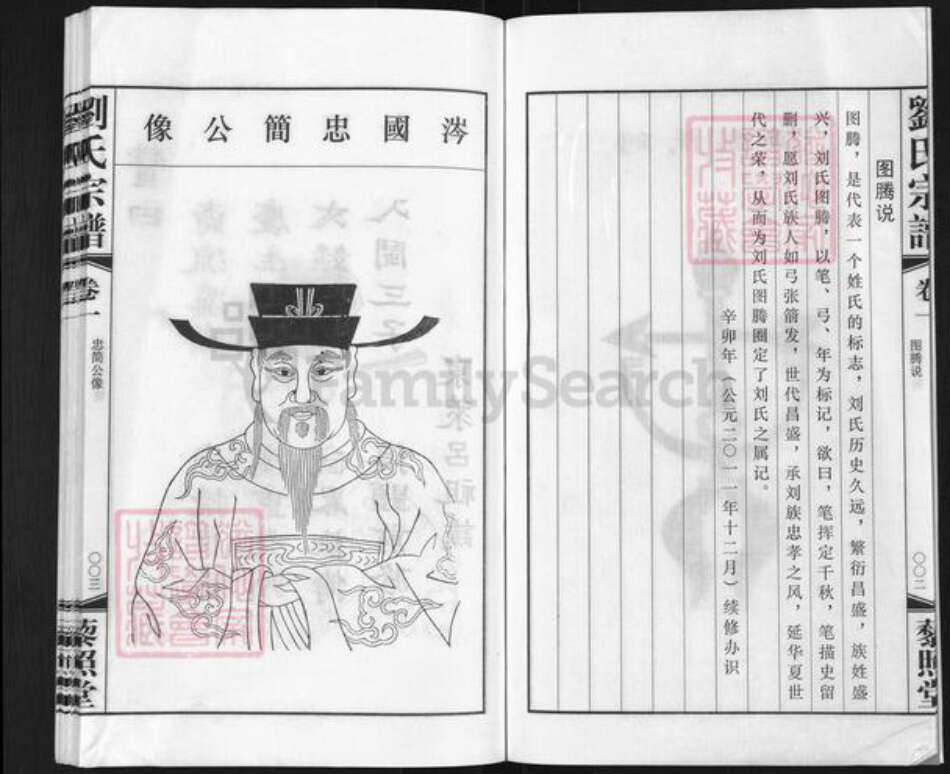 劉氏宗譜
卷一
图腾说
〇〇二
藜照堂
图腾说
图腾，是代表一个姓氏的标志，刘氏历史久远，繁衍昌盛，族姓盛
兴，刘氏图腾，以笔、弓、年为标记，欲曰，笔挥定千秋，笔描史留
删，愿刘氏族人如弓张箭发，世代昌盛，承刘族忠孝之风，延华夏世
代之荣，从而为刘氏图腾圈定了刘氏之属记。
辛卯年（公元二〇一一年十二月）续修办识
涔國忠簡公像
劉氏宗譜
卷一
忠简公像
〇〇三
藜照堂
FamilySearch